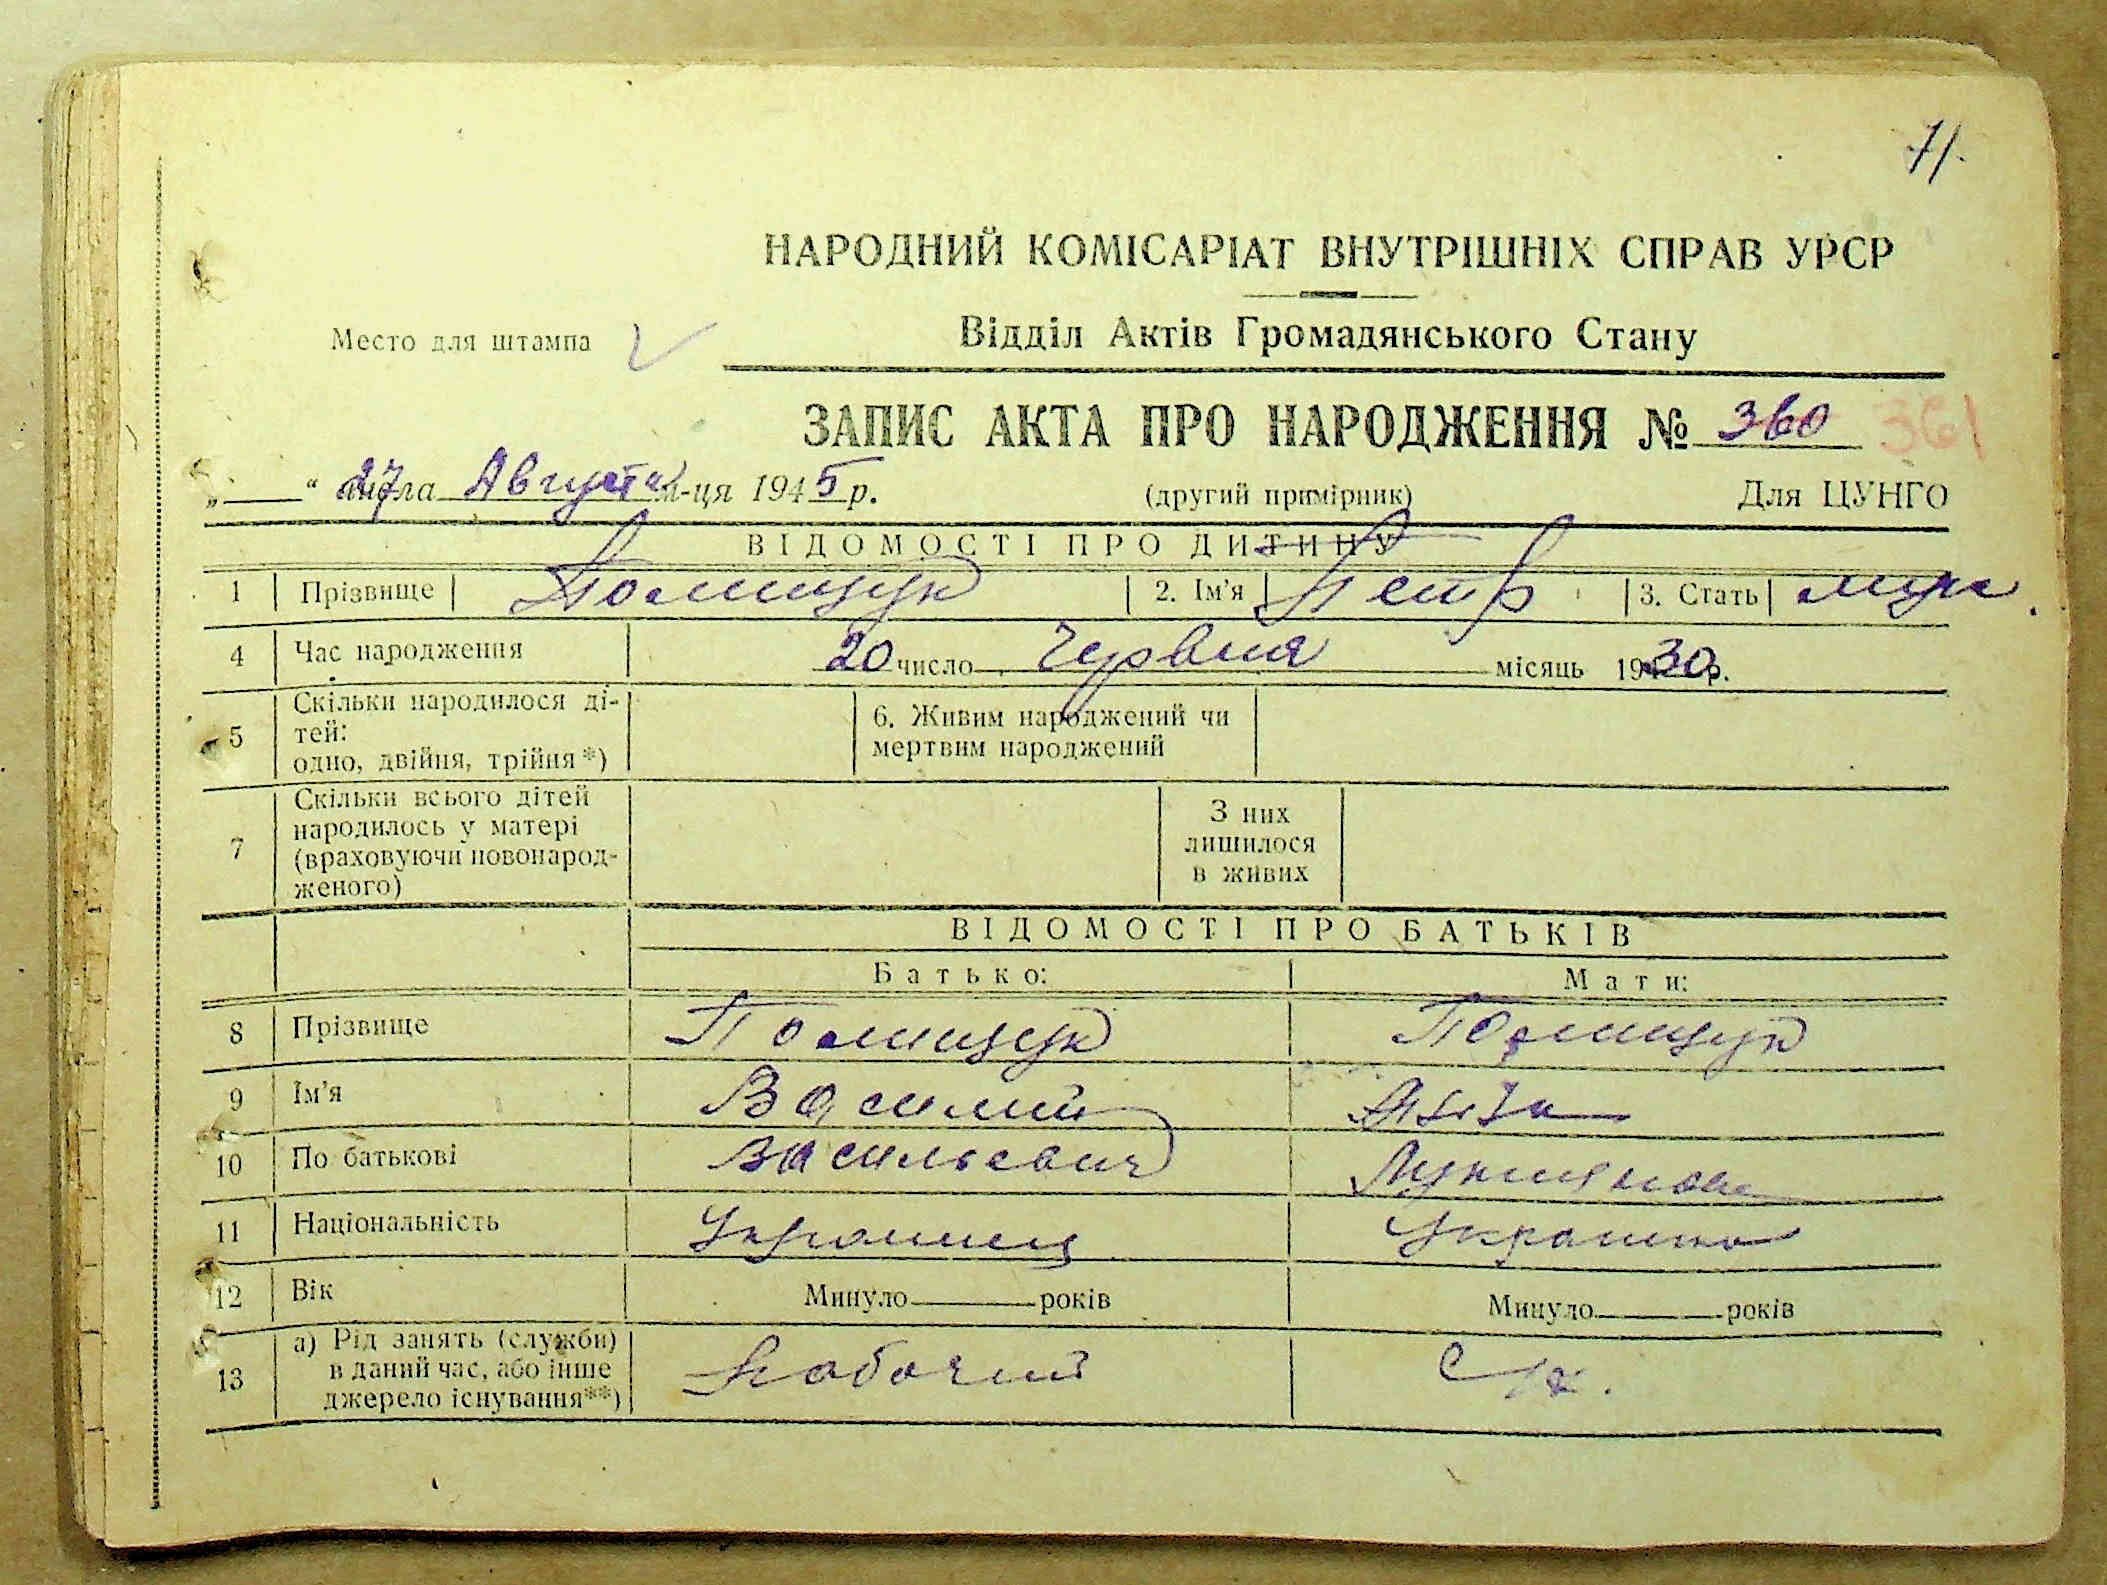 71.
НАРОДНИЙ КОМІСАРІАТ ВНУТРІШНІХ СПРАВ УРСР
Место для штампа
Відділ Актів Громадянського Стану
ЗАПИС АКТА ПРО НАРОДЖЕННЯ № 360 361
„ “ 27 числа Августа м-ця 1945 р. (другий примірник) Для ЦУНГО
ВІДОМОСТІ ПРО ДИТИНУ
1 Прізвище Полищук 2. Ім'я Петр 3. Стать муж.
4 Час народження 20 число Червня місяць 1930 р.
5 Скільки народилося ді-
тей:
одно, двійня, трійня*)
6. Живим народжений чи
мертвим народжений
7 Скільки всього дітей
народилось у матері
(враховуючи новонарод-
женого)
З них
лишилося
в живих
ВІДОМОСТІ ПРО БАТЬКІВ
Батько: Мати:
8 Прізвище Полищук Полищук
9 Ім'я Василий
10 По батькові Васильевич
11 Національність Украинец Украинка
12 Вік Минуло років Минуло років
13 а) Рід занять (служби)
в даний час, або інше
джерело існування**)
Рабочий